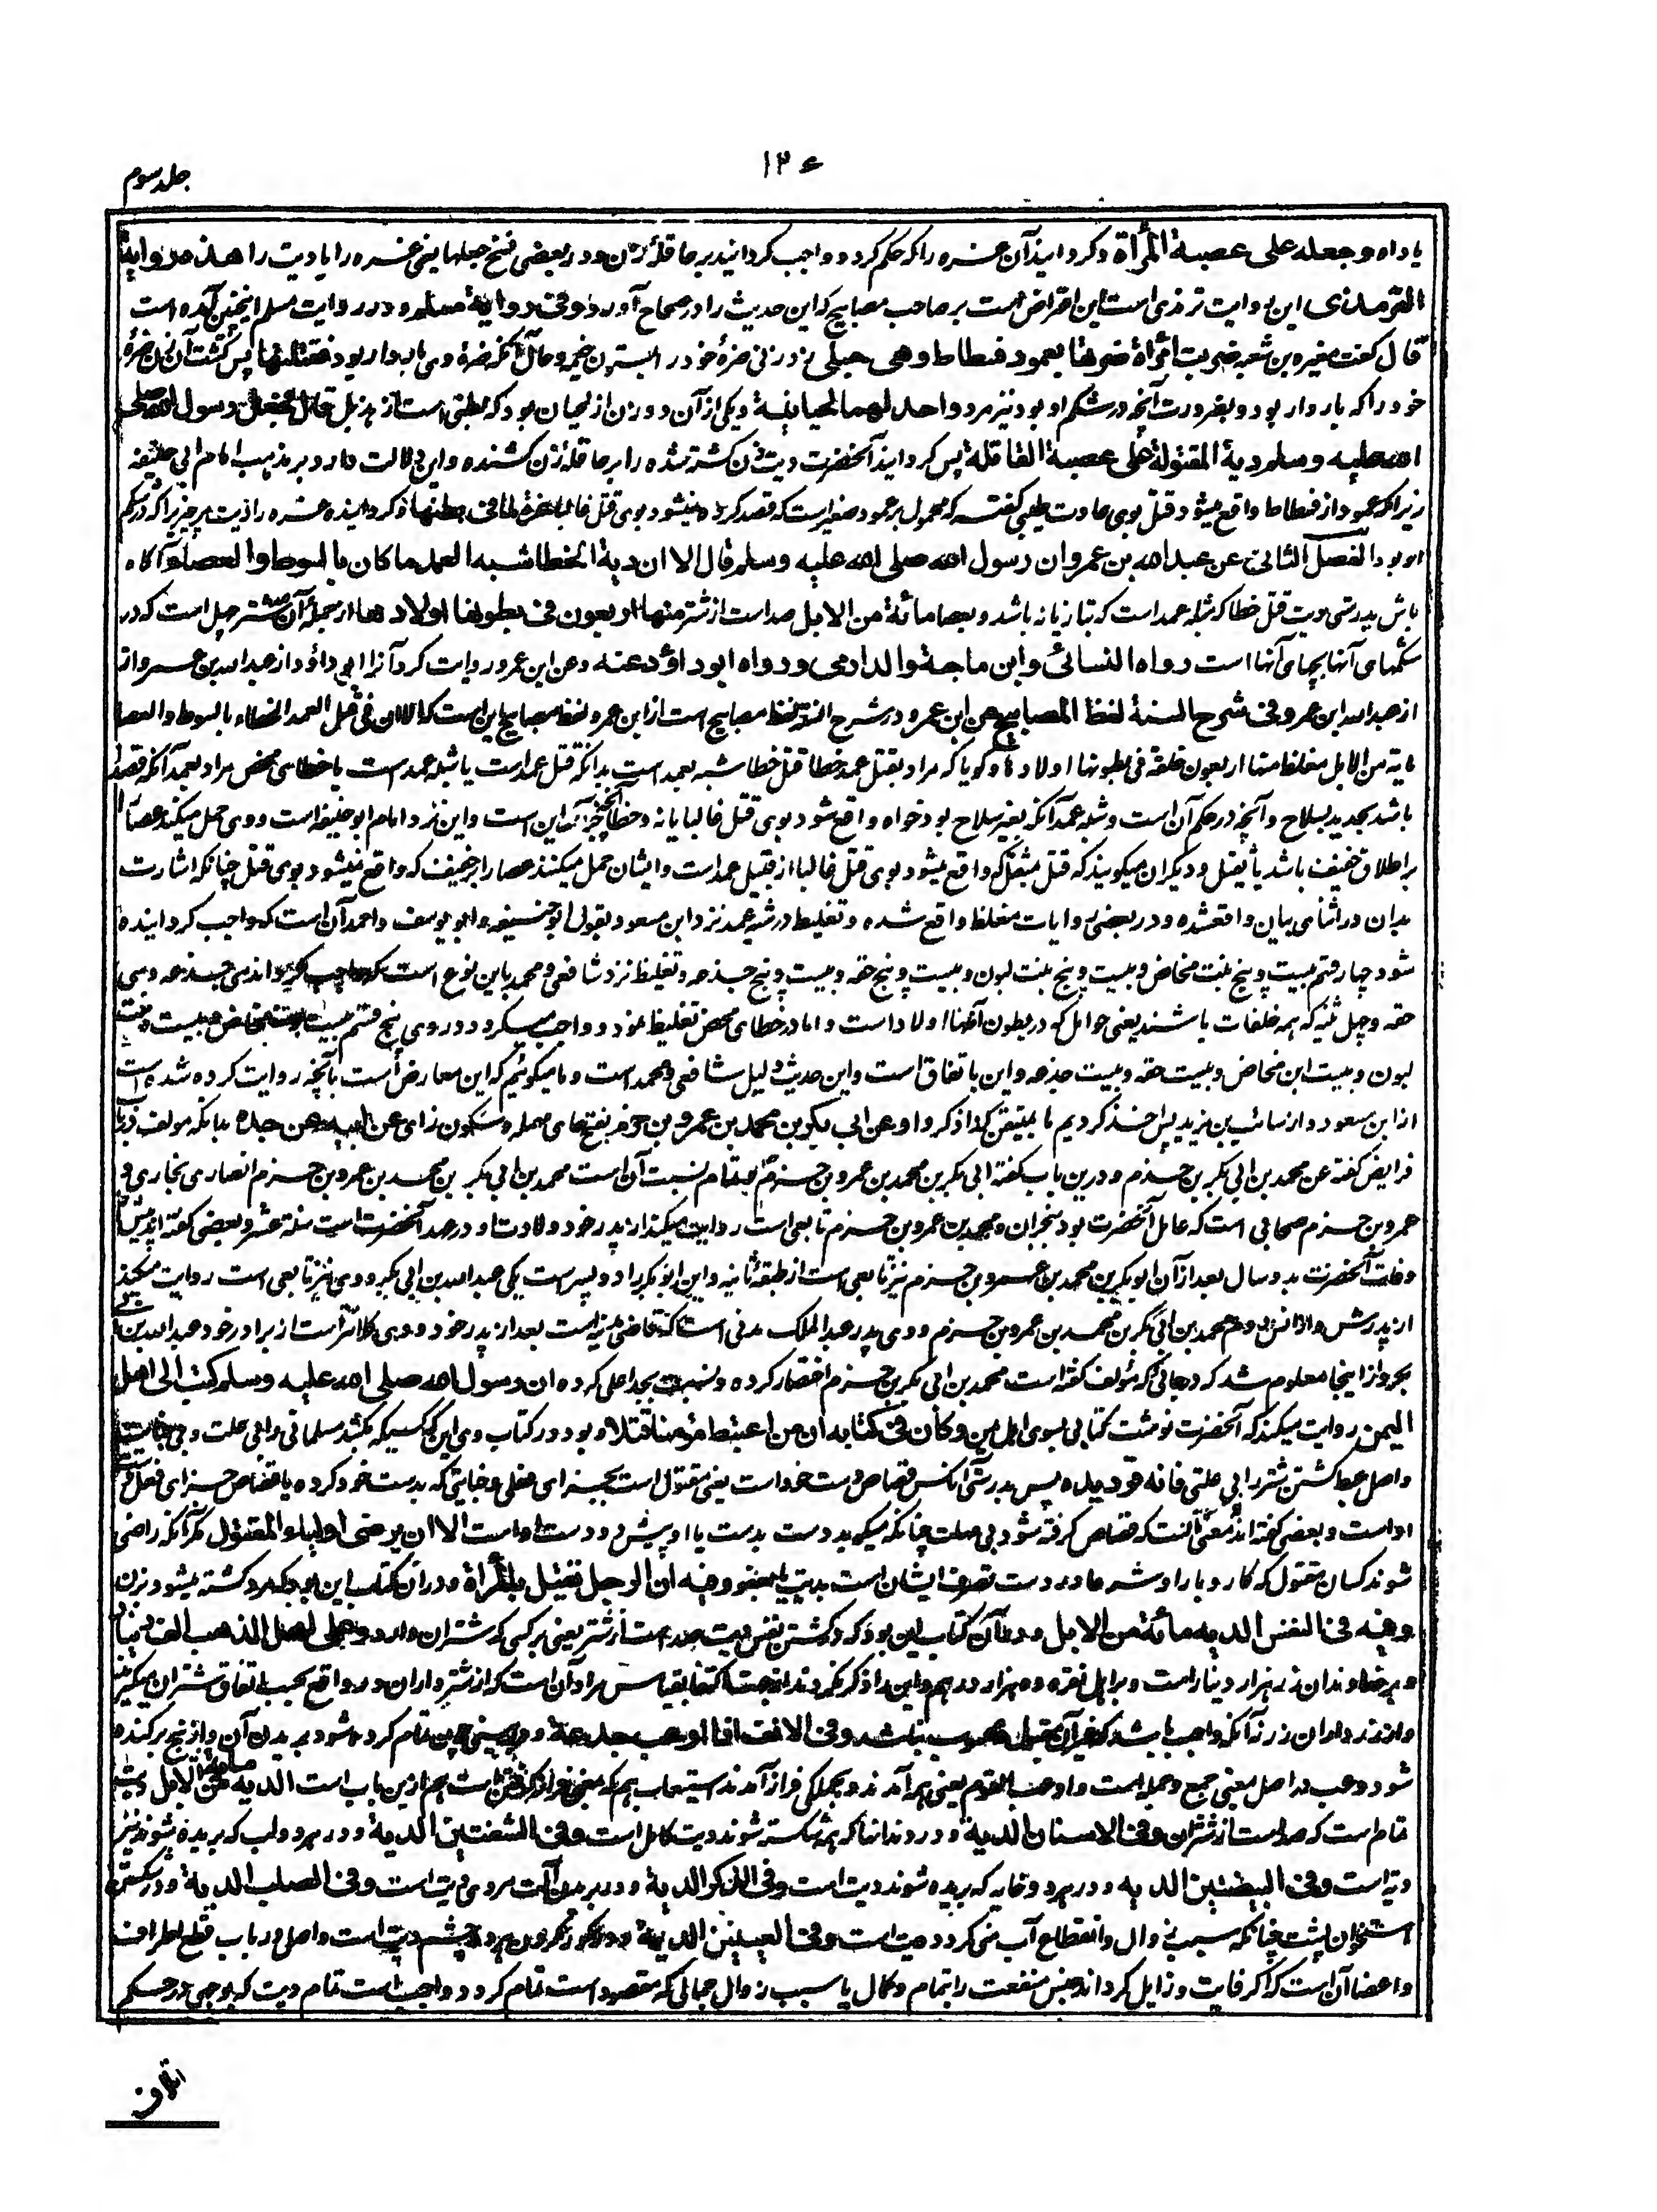 ۱۲۶
جلد سوم
یا داه وجعله على عصبة المرأة وگردانید آن غره را که حکم کرد و واجب گردانید بر عاقلهٔ زن و در بعضی نسخ جعلها یعنی غره را یا دیت را هذه رواية
الترمذى این روایت ترمذی است این اعتراض است بر صاحب مصابیح که این حدیث را در صحاح آورد وفى رواية مسلم و در روایت مسلم اینچنین آمده است
قال گفت مغیره بن شعبه ضربت امرأة ضرتها بعمود فسطاط وهى حبلى زد زنی ضرهٔ خود را بستون خیمه و حال آنکه ضره وی باردار بود فقتلتها پس کشت آن زن ضرهٔ
خود را که باردار بود و بضرورت آنچه در شکم او بود نیز مرد واحدلهما لحيانية و یکی از آن دو زن از لحیان بود که بطنی است از هذیل قال فجعل رسول الله صلى
الله عليه وسلم دية المقتولة على عصبة القاتلة پس گردانید آنحضرت دیت زن کشته شده را بر عاقله زن کشنده و این دلالت دارد بر مذهب امام ابی حنیفه
زیرا که عمود از فسطاط واقع میشود قتل بوی عادت طیبی گفته که محمول بر عمود صغیر است که قصد کرده نمیشود بوی قتل غالبا وغرة لما فى بطنها و گردانیده غره را دیت هر چیز را که در شکم
او بود الفصل الثانى عن عبد الله بن عمرو ان رسول الله صلى الله عليه وسلم قال الا ان دية الخطا شبه العمد ما كان بالسوط والعصا آگاه
باش بدرستی دیت قتل خطا که شبه عمد است که بتازیانه باشد و بعصا مائة من الابل صد است از شتر منها اربعون فى بطونها اولادها از جمله آن صد شتر چهل است که در
شکمهای آنها بچهای آنها است رواه النسائى وابن ماجة والدارمى ورواه ابوداؤد عنه وعن ابن عمر و روایت کرد آنرا ابوداؤد از عبدالله بن عمرو از
از عبدالله ابن عمر وفى شرح السنة لفظ المصابيح عن ابن عمر و در شرح السنة لفظ مصابیح است از ابن عمر و لفظ مصابیح این است که الا ان فی قتل العمد الخطاء بالسوط والعصا
مایة من الابل مغلظة منها اربعون خلفة فی بطونها اولادها و گویا که مراد بقتل عمد خطا قتل خطا شبه بعمد است بدانکه قتل عمد است یا شبه عمد است یا خطای محض مراد بعمد آنکه قصد
باشد بحدید بسلاح و آنچه در حکم آن است و شبه عمد آنکه بغیر سلاح بود خواه واقع شود بوی قتل غالبا یا نه و خطا آنچه جز این است و این نزد امام ابوحنیفه است و وی حمل میکند عصا را
بر اطلاق خفیف باشد یا ثقیل و دیگران میگویند که قتل بمثقل که واقع میشود بوی قتل غالبا از قبیل عمد است و ایشان حمل میکنند عصا را بر خفیف که واقع نمیشود بوی قتل چنانکه اشارت
بدان در اثنای بیان واقعشده و در بعضی روایات مغلظ واقع شده و تغلیظ در شبه عمد نزد ابن مسعود بقول ابوحنیفه و ابو یوسف و احمد آن است که واجب گردانیده
شود چهار قسم بیست و پنج بنت مخاض و بیست و پنج بنت لبون و بیست و پنج حقه و بیست و پنج جذعه و تغلیظ نزد شافعی و محمد باین نوع است که واجب گرداند سی جذعه و سی
حقه و چهل ثنیه که همه خلفات باشند یعنی حوامل که در بطون آنها اولاد است و اما در خطای محض تغلیظ نبود و واجب میگردد در وی پنج قسم بیست بنت مخاض و بیست بنت
لبون و بیست ابن مخاض و بیست حقه و بیست جذعه و این باتفاق است و این حدیث دلیل شافعی و محمد است و ما میگوئیم که این معارض است بآنچه روایت کرده شده است
از ابن مسعود و از سائب بن یزید پس اخذ کردیم ما بمتیقن که ذکر کرد او وعن ابى بكر بن محمد بن عمرو بن حزم بفتح حای مهمله و سکون زای عن ابيه عن جده بدانکه مولف در
فرایض گفته عن محمد بن ابی بکر بن حزم و درین باب گفته ابی بکر بن محمد بن عمرو بن حزم و تمام نسبت آن است محمد بن ابی بکر بن محمد بن عمرو بن حزم انصاری نجاری و
عمرو بن حزم صحابی است که عامل آنحضرت بود بنجران و محمد بن عمرو بن حزم تابعی است روایت میکند از پدر خود و ولادت او در عهد آنحضرت است سنة عشر و بعضی گفته اند پیش از
وفات آنحضرت بدو سال بعد از آن ابوبکر بن محمد بن عمرو بن حزم نیز تابعی است از طبقه ثانیه و این ابوبکر را دو پسر است یکی عبدالله بن ابی بکر و وی نیز تابعی است روایت میکند
از پدرش و از انس دوم محمد بن ابی بکر بن محمد بن عمرو بن حزم و وی پدر عبدالملک مدنی است که قاضی مدینه است بعد از پدر خود و وی کلانتر است از برادر خود عبدالله بن ابی
بکر و از اینجا معلوم شد که در جائی که مؤلف گفته است محمد بن ابی بکر بن حزم اختصار کرده و نسبت بجد اعلی کرده ان رسول الله صلى الله عليه وسلم كتب الى اهل
اليمن روایت میکند که آنحضرت نوشت کتابی بسوی اهل یمن وكان فى كتابه ان من اعتبط مؤمنا قتلا و بود در کتاب وی این که کسیکه بکشد مسلمانی را بی علت و بی جنایت
واصل عبط کشتن شتر را بی علتی فانه قود يده پس بدرستی آنکس قصاص دست خود است یعنی مقتول است بجزای فعلی و جنایتی که بدست خود کرده یا قصاص جزای فعل
او است و بعضی گفته اند معنی آنست که قصاص گرفته شود بی مهلت چنانکه میگوید دست بدست یا او پیش دو دست او است الا ان يرضى اولياء المقتول مگر آنکه راضی
شوند کسان مقتول که کار و بار او شرعا در دست تصرف ایشان است بدیت یا بعفو وفيه ان الرجل يقتل بالمرأة و در آن کتاب این بود که مرد کشته میشود بزن
وفيه فى النفس الدية مائة من الابل و در آن کتاب این بود که در کشتن نفس دیت صد است از شتر یعنی بر کسی که شتران دارد وعلى اهل الذهب الف دينار
و بر خداوندان زر هزار دینار است و بر اهل نقره ده هزار درهم و این را ذکر نکردند از جهت اکتفا بقیاس مراد آن است که از شترداران در واقع بحسب اتفاق شتران میگیرند
و از زرداران زر نه آنکه واجب باشد که غیر آن مقبول و محسوب نباشد وفى الانف اذا اوعب جدعه و در بینی چون تمام کرده شود بریدن آن و از بیخ برکنده
شود وعب در اصل معنی جمع و جمله است و اوعب القوم یعنی همه آمدند و بجملگی فراز آمدند استیعاب هم که بمعنی فرا گرفتن است هم ازین باب است الدية مائة من الابل دیت
تمام است که صد است از شتران وفى الاسنان الدية و در دندانها که همه شکسته شوند دیت کامل است وفى الشفتين الدية و در هر دو لب که بریده شوند نیز
دیة است وفى البيضتين الدية و در هر دو خایه که بریده شوند دیت است وفى الذكر الدية و در بریدن آلت مردی دیت است وفى الصلب الدية و در شکستن
استخوان پشت چنانکه سبب زوال و انقطاع آب منی گردد دیت است وفى العينين الدية و در کور کردن هر دو چشم دیت است و اصل در باب قطع اطراف
و اعضا آن است که اگر فایت و زایل گرداند جنس منفعت را بتمام و کمال یا سبب زوال جمالی که مقصود است تمام گردد و واجب است تمام دیت که بوجهی در حکم
اتلاف